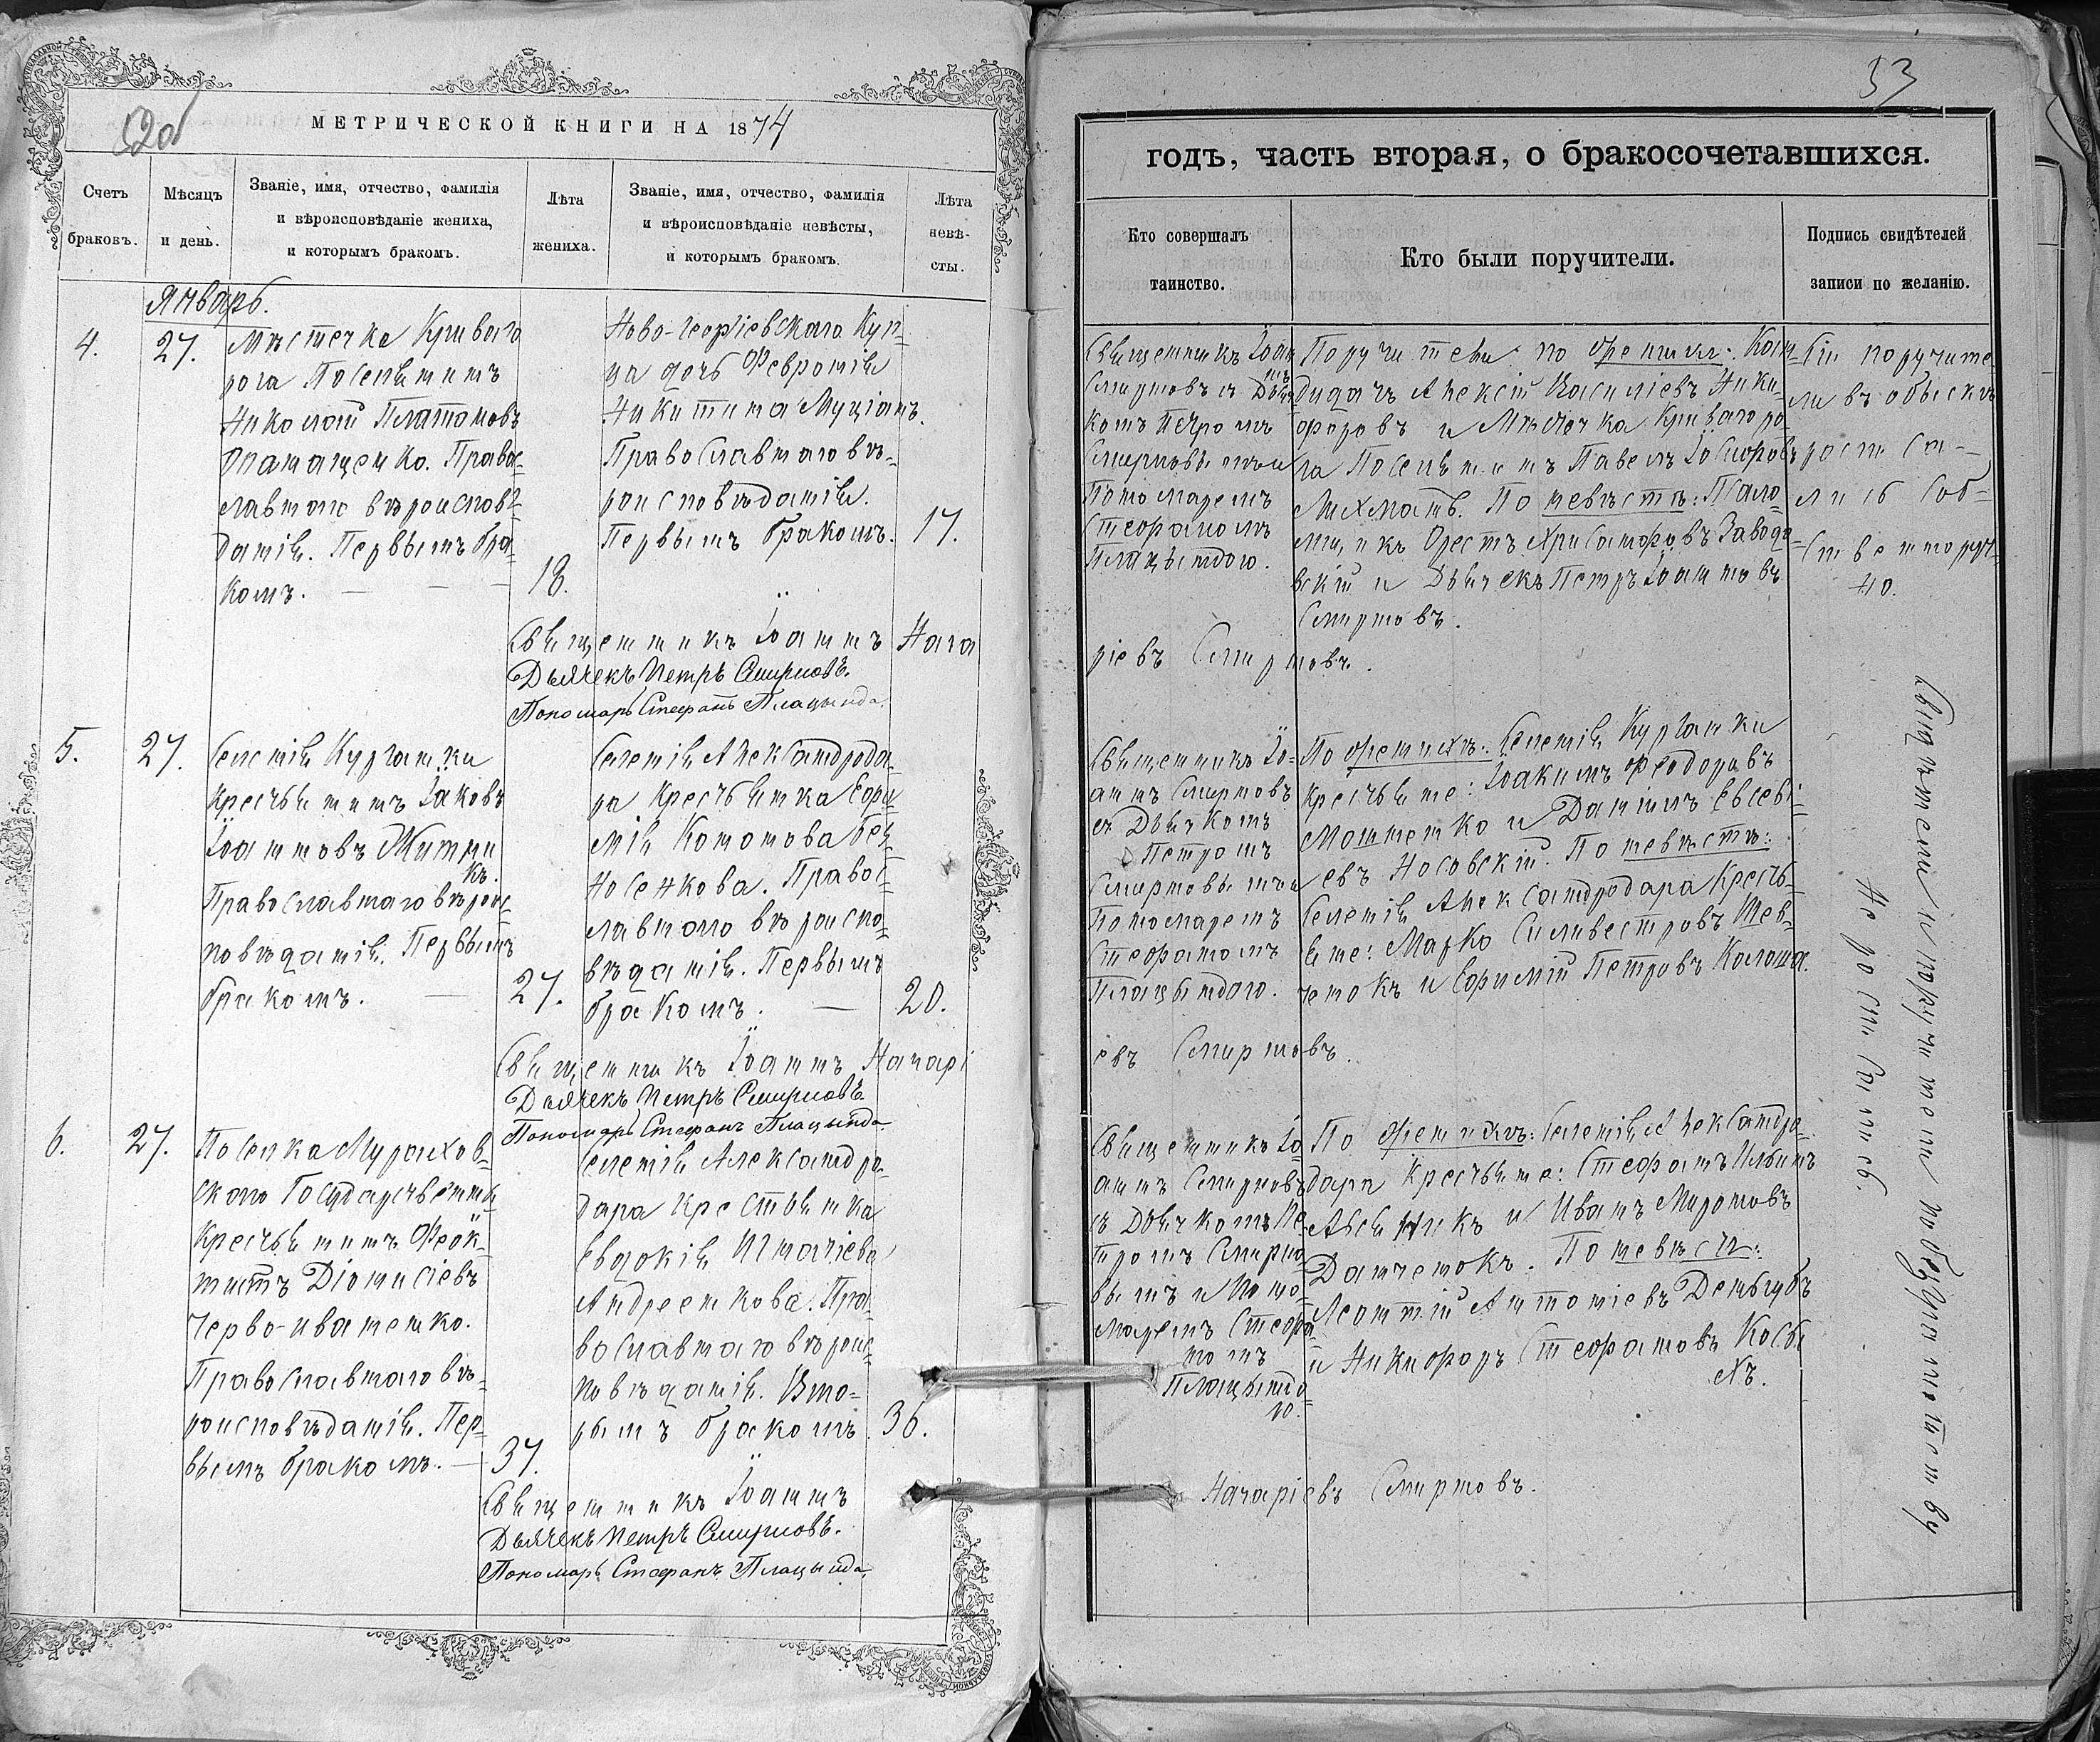 52об
МЕТРИЧЕСКОЙ КНИГИ НА 1874
Счетъ
браковъ.
Мѣсяцъ
и день.
Званіе, имя, отчество, фамилія
и вѣроисповѣданіе жениха,
и которымъ бракомъ.
Лѣта
жениха.
Званіе, имя, отчество, фамилія
и вѣроисповѣданіе невѣсты,
и которымъ бракомъ.
Лѣта
невѣ-
сты.
Январь.
4.
27.
Мѣстечка Криваго
рога Поселянинъ
Николай Платоновъ
Православ-
наго вѣроисповѣ-
данія. Первымъ бра-
комъ.
18.
Ново-Георгіевскаго Куп-
ца дочь Февронія
Никитина
Православнаго вѣ-
роисповѣданія.
Первымъ бракомъ.
17.
Священникъ Іоаннъ Наза
Дьячекъ Петръ Смирновъ.
Пономарь Стефанъ Плацында.
5.
27.
Селенія Курганки
крестьянинъ Іаковъ
Іоанновъ Житни
къ.
Православнаго вѣроис-
повѣданія. Первымъ
бракомъ.
27.
Селенія Александрода-
ра крестьянка Ефи-
мія Кононова
Правос-
лавнаго вѣроиспо-
вѣданія. Первымъ
бракомъ.
20.
Священникъ Іоаннъ Назарі
Дьячекъ Петръ Смирновъ.
Пономарь Стефанъ Плацында.
6.
27.
Поселка
Государственный
крестьянинъ Феок-
тистъ Діонисіевъ
Черво-иваненко.
Православнаго вѣ-
роисповѣданія. Пер-
вымъ бракомъ.
37.
Селенія Александро-
дара крестьянка
Евдокія Игнатіева
Андреенкова. Пра-
вославнаго вѣроис-
повѣданія. Вто-
рымъ бракомъ.
36.
Священникъ Іоаннъ
Дьячекъ Петръ Смирновъ.
Пономарь Стефанъ Плацында.
53
годъ, часть вторая, о бракосочетавшихся.
Кто совершалъ
таинство.
Кто были поручители.
Подпись свидѣтелей
записи по желанію.
Священникъ Іоан
нъ
Смирновъ съ Дьяч-
комъ Петромъ
Смирновымъ и
Пономаремъ
Стефаномъ
Плацындою.
Поручители: по женихѣ: Кан-
дидатъ Алексій Василіевъ Ники-
форовъ и Мѣстечка Криваго ро-
га Поселянинъ Павелъ
По невѣстѣ: Псало-
мщикъ Орестъ Христофоровъ Заводо-
вскій и Дьячекъ Петръ Іоанновъ
Смирновъ.
Сіи поручите
ли въ обыскѣ
рости са-
лись соб-
ственноруч-
но.
ріевъ Смирновъ.
Священникъ Іо-
аннъ Смирновъ
съ Дьячкомъ
Петромъ
Смирновымъ и
Пономаремъ
Стефаномъ
Плацындою.
По женихѣ: Селенія Курганки
крестьяне: Іоакимъ Феодоровъ
и Даніилъ Евсеві-
евъ Носовскій. По невѣстѣ:
Селенія Александродара кресть-
яне: Марко Сильвестровъ Шев-
ченокъ и Ефимій Петровъ Калаша.
евъ Смирновъ.
Священникъ Іо-
аннъ Смирновъ
съ Дьячкомъ Пе-
тромъ Смирно-
вымъ и Поно-
маремъ Стефа-
номъ
Плацындо
ю.
По женихѣ: Селенія Александро-
дара крестьяне: Стефанъ Ильинъ
и Иванъ Мироновъ
Данченокъ. По невѣстѣ:
Леонтій Антоніевъ
и Никифоръ Стефановъ Косы
хъ.
Назаріевъ Смирновъ.
Свидѣтели и поручители по безграмотству
не росписались.